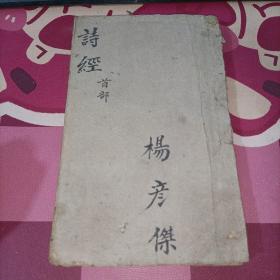 詩經
首部
楊彥傑